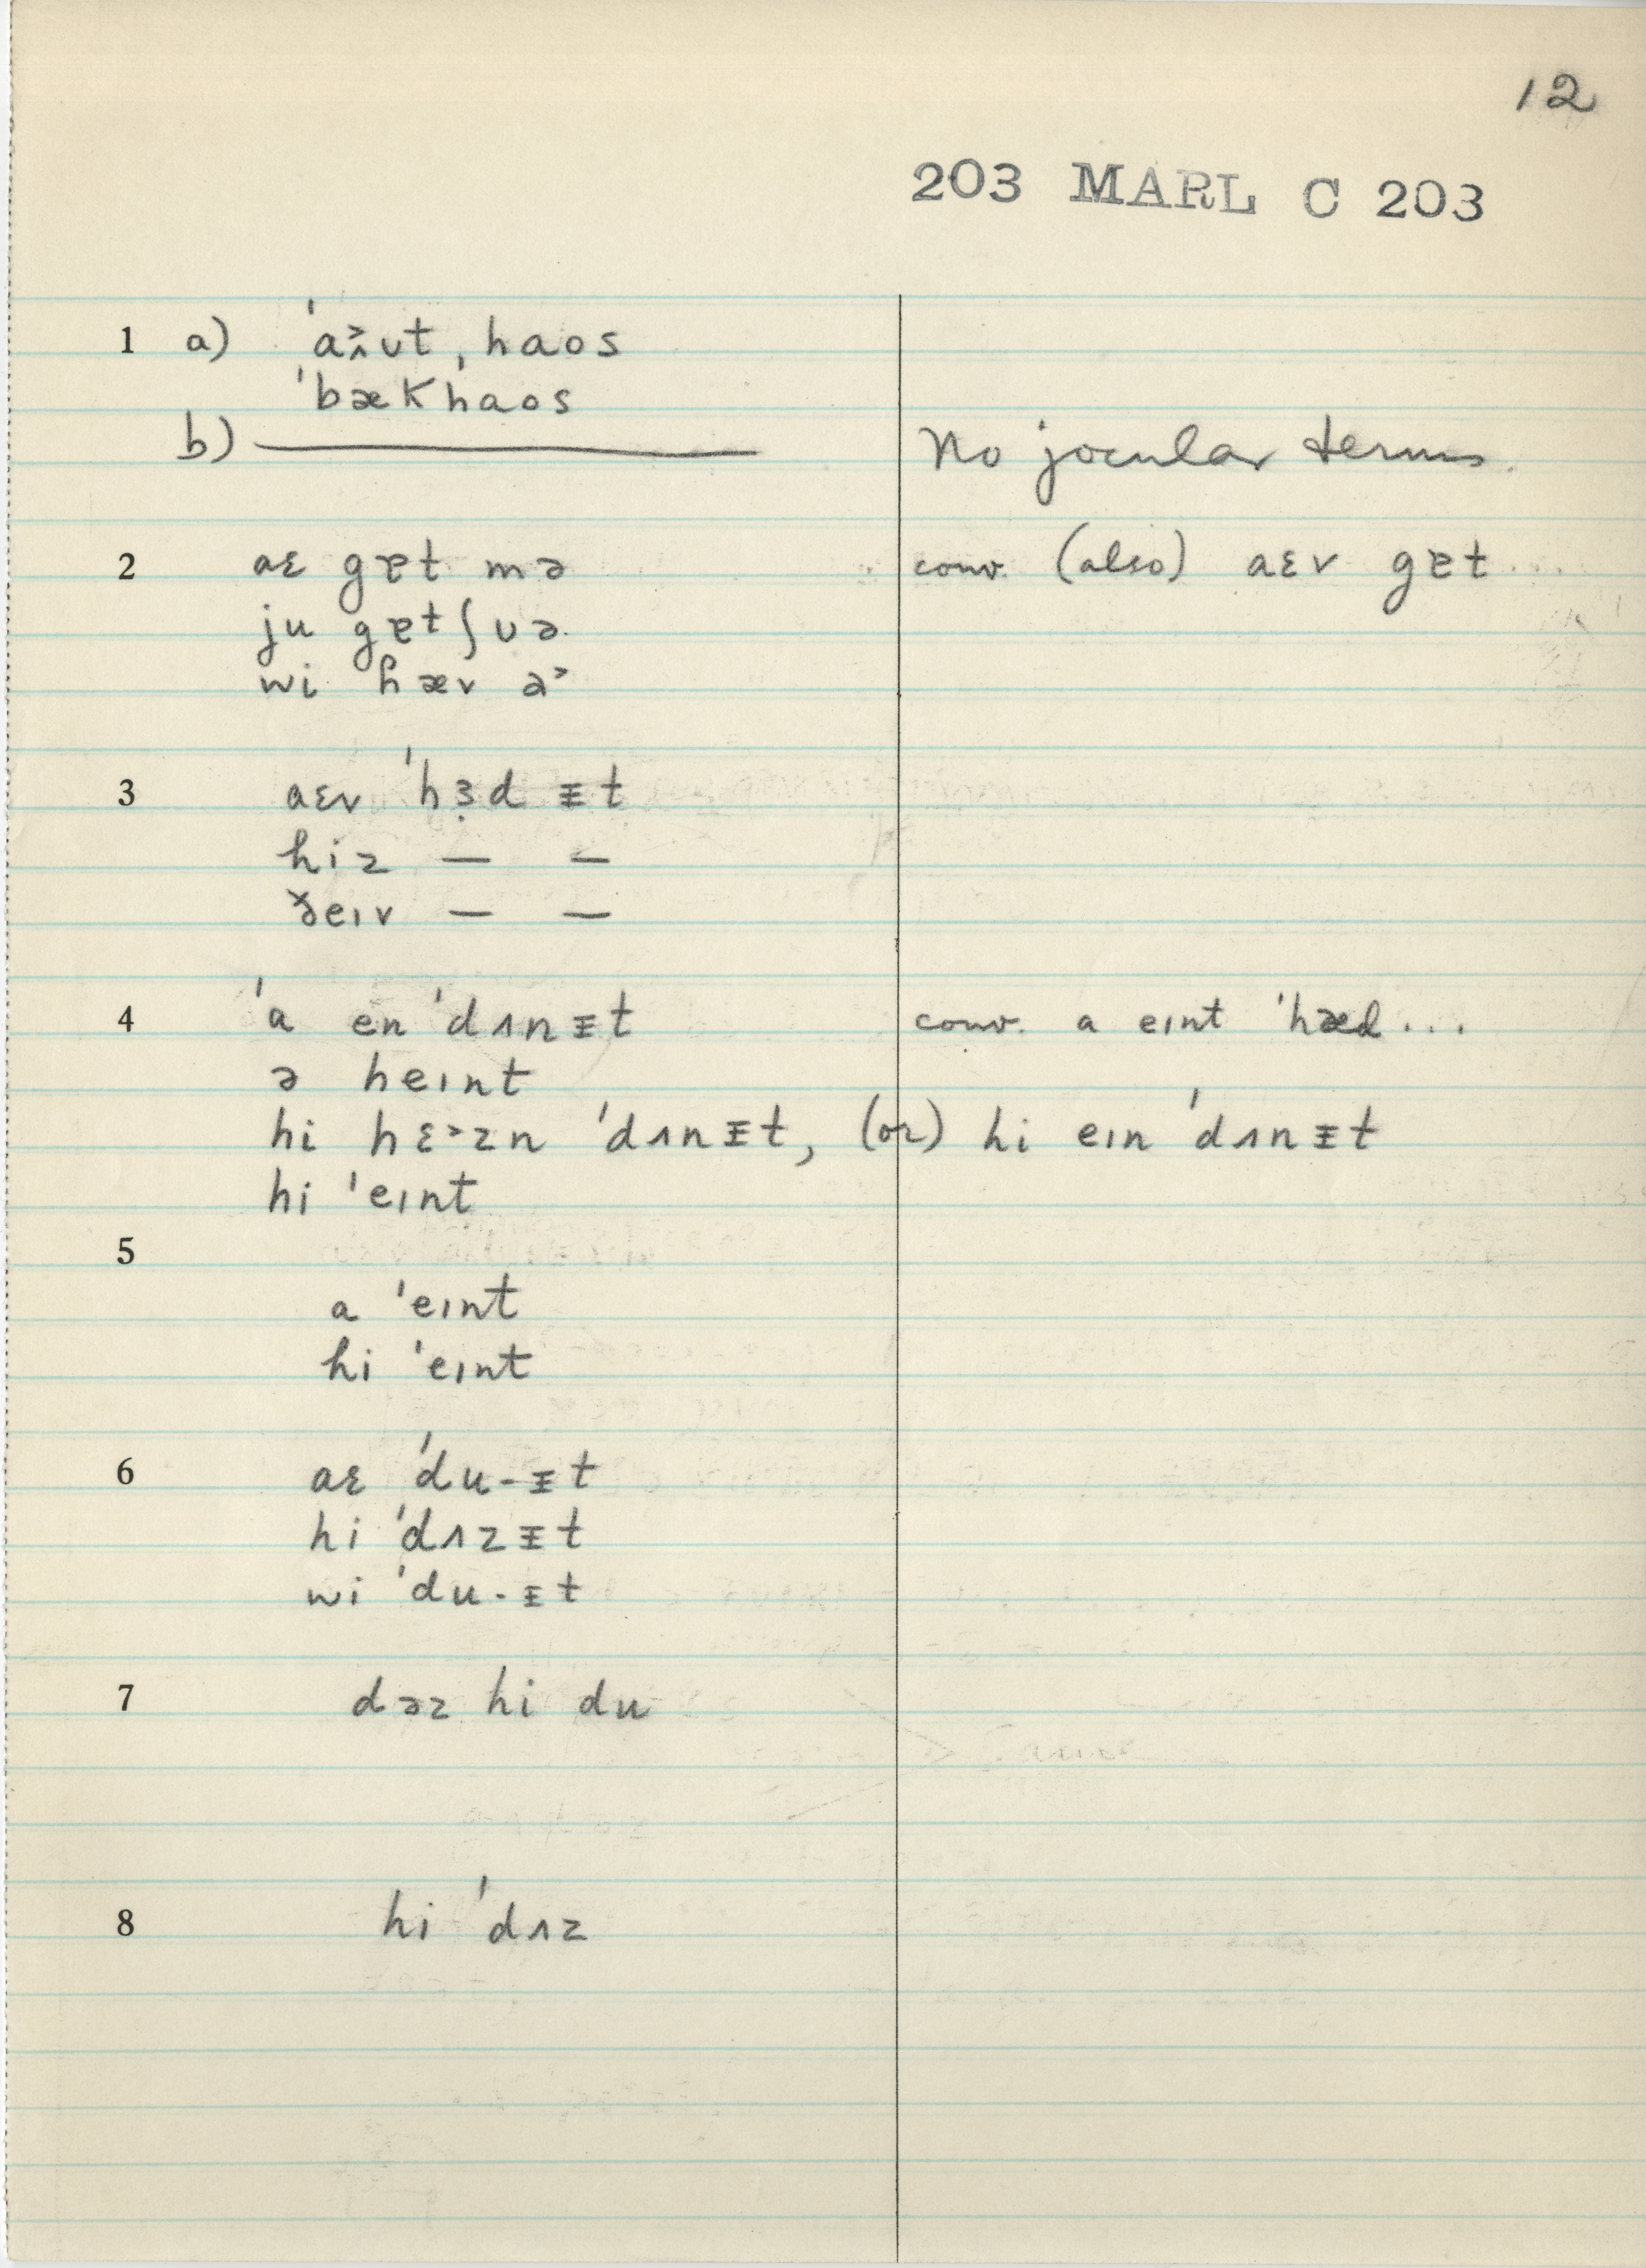 12
203 MARL C 203
1 a) ˈa˃^ʊt ˌhaos
ˈbækhaos
b) —— No jocular terms.
2 aɛ gɐt mə conv. (also) aɛv gɐt...
ju gɐtʃʊə
wi hæv ə˃
3 aɛv ˈhɜ̣d ᵻt
hiz — —
ðeɪv — —
4 ˈa en ˈdʌnᵻt conv. a eɪnt ˈhæd...
ə heɪnt
hi hɛ˃zn ˈdʌnᵻt, (or) hi eɪn ˈdʌnᵻt
hi ˈeɪnt
5
a ˈeɪnt
hi ˈeɪnt
6 aɛ ˈdu-ᵻt
hi ˈdʌzᵻt
wi ˈdu-ᵻt
7 dəz hi du
8 hi ˈdʌz